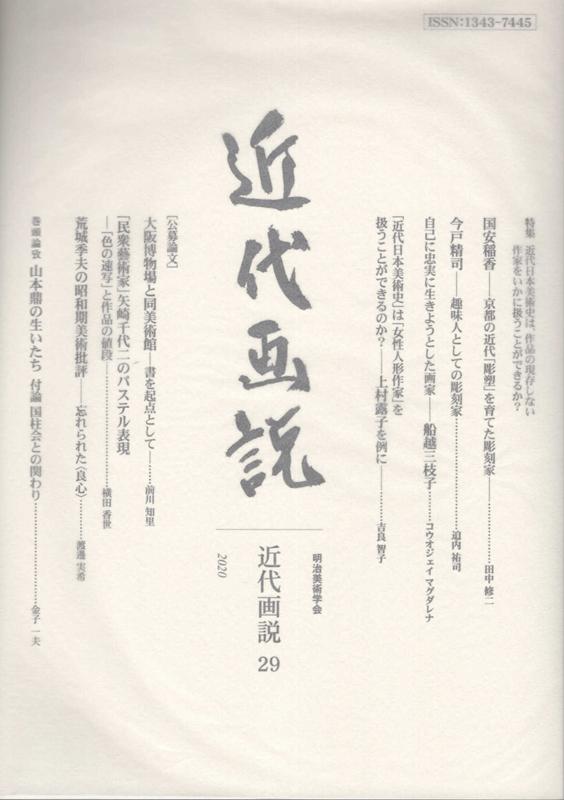 ISSN:1343-7445
特集 近代日本美術史は、作品の現存しない
作家をいかに扱うことができるか?
国安稲香——京都の近代「彫塑」を育てた彫刻家——…………田中 修二
今戸精司——趣味人としての彫刻家…………迫内 祐司
自己に忠実に生きようとした画家——船越三枝子………コウオジェイ マグダレナ
「近代日本美術史」は「女性人形作家」を
扱うことができるのか?——上村露子を例に——……吉良 智子
近代画説
明治美術学会
近代画説 29
2020
[公募論文]
大阪博物場と同美術館—書を起点として—……前川 知里
「民衆藝術家」矢崎千代二のパステル表現
—「色の速写」と作品の値段…………横田 香世
荒城季夫の昭和期美術批評——忘れられた〈良心〉………渡邊 実希
巻頭論攷 山本鼎の生いたち 付論 国柱会との関わり…………金子 一夫